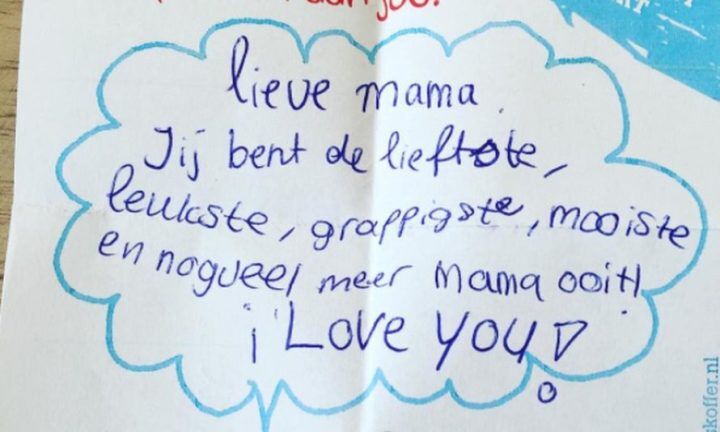 lieve mama.
Jij bent de liefste,
leukste, grappigste, mooiste
en nogveel meer mama ooit!
i Love you!
skoffer.nl